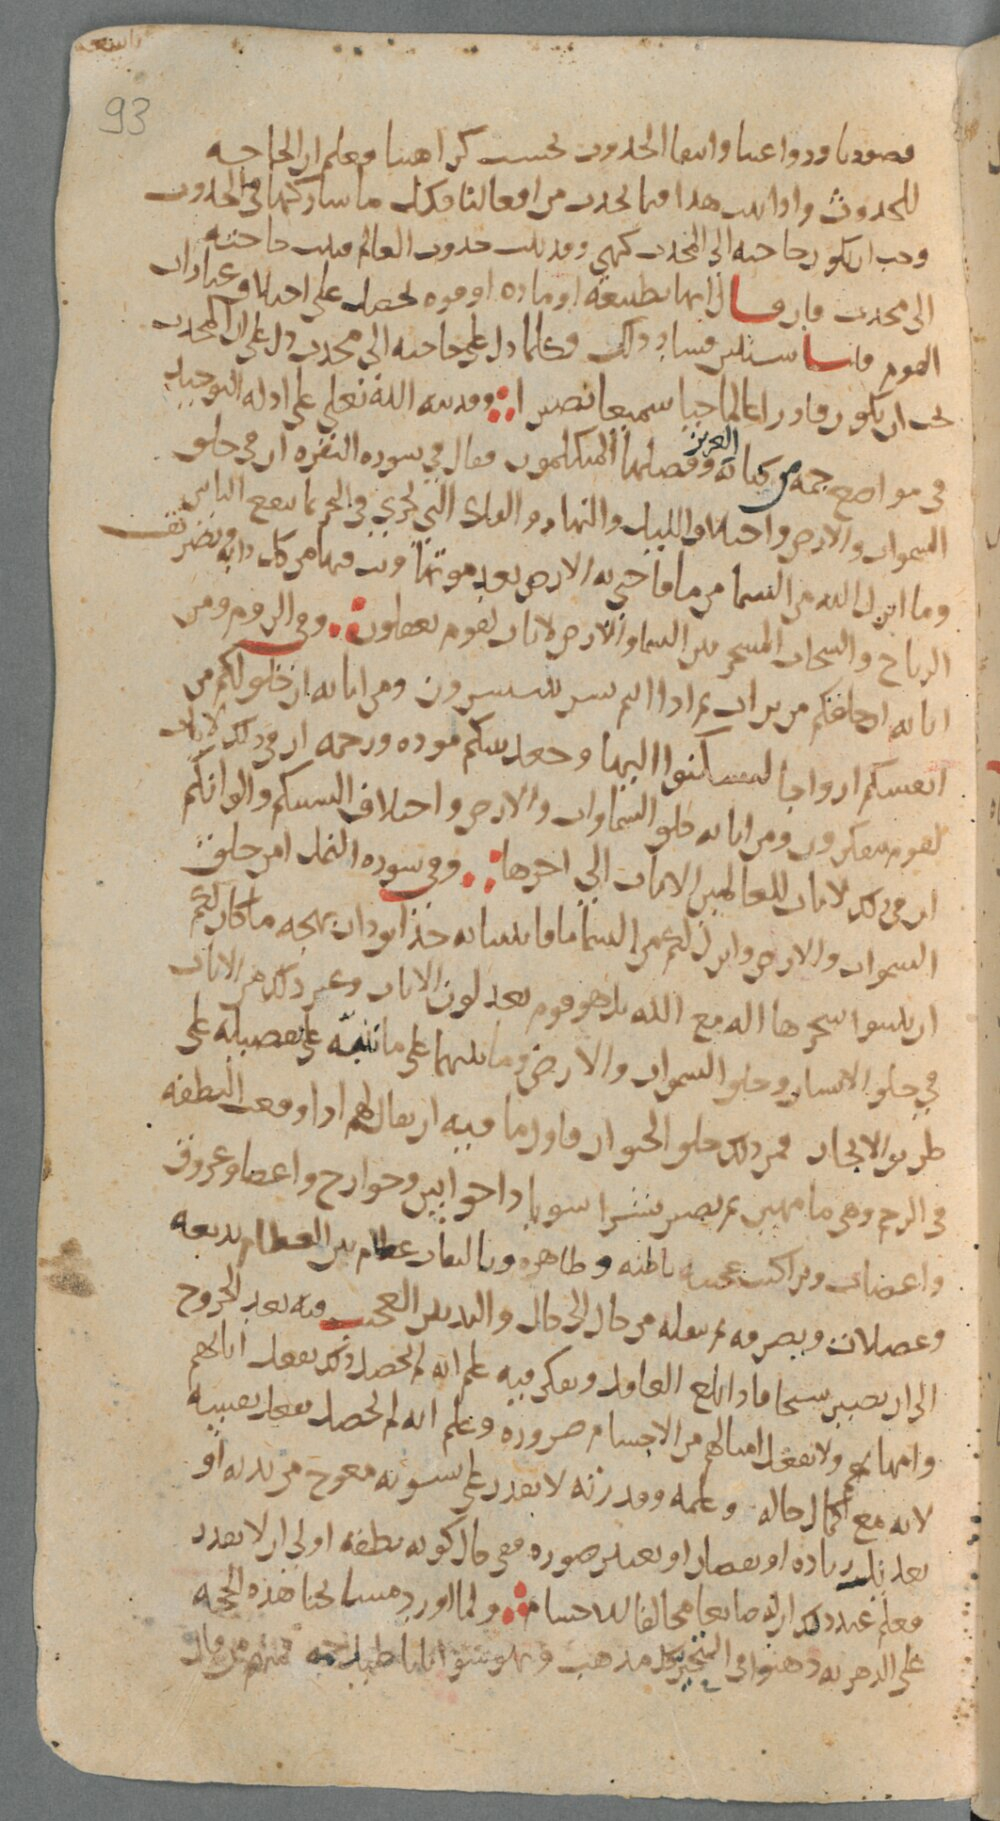 93
قصودنا ودواعينا وانتفا الحدوث بحسب كراهتنا فعلم ان الحاجه
للحدوث واذا ثبت هذا فيما يحدث من افعالنا فكل ما شاركها في الحدوث
وجب ان يكون حاجته الى المحدث كهي وقد ثبت حدوث العالم فثبت حاجته
الى محدث فان قال انها بطبيعة او ماده او قوه تحصل على اختلاف عبارات
القوم قلنا سنبين فساد ذلك وكلما دل على حاجته الى محدث دل على ان المحدث
يجب ان يكون قادرا عالما حيا سميعا بصيرا وقد نبه الله تعلى على ادله التوحيد
في مواضع جمه من كتابه العزيز وفصلها المتكلمون فقال في سوره البقره ان في خلق
السموات والارض واختلاف الليل والنهار والفلك التي تجري في البحر بما ينفع الناس
وما انزل الله من السما من ما فاحيى به الارض بعد موتها وبث فيها من كل دابه وتصريف
الرياح والسحاب المسخر بين السما والارض لايات لقوم يعقلون وفي الروم ومن
اياته ان خلقكم من تراب ثم اذا انتم بشر تنتشرون ومن اياته ان خلق لكم من
انفسكم ازواجا لتسكنوا اليها وجعل بينكم موده ورحمه ان في ذلك لايات
لقوم يتفكرون ومن اياته خلق السماوات والارض واختلاف السنتكم والوانكم
ان في ذلك لايات للعالمين الايات الى اخرها وفي سوره النمل امن خلق
السموات والارض وانزل لكم من السما ما فانبتنا به حدايق ذات بهجه ما كان لكم
ان تنبتوا شجرها اله مع الله بل هم قوم يعدلون الايات وغير ذلك من الايات
في خلق الانسان وخلق السموات والارض وما بينهما على ما ننبه على تفصيله على
طريق الايجاز فمن ذلك خلق الحيوان فاول ما فيه ان يقال لهم اذا وقعت النطفه
في الرحم وهي ما مهين ثم يصير بشرا سويا ذا حواس وجوارح واعضا وعروق
واعصاب وتراكيب عجيبه باطنه وظاهره وتاليفات عظام بين العظام بديعه
وعضلات وتصرفه ثم ينقله من حال الى حال والتدبير العجيب فيه بعد الخروج
الى ان يصير شيخا فاذا تامل العاقل وتفكر فيه علم انه لم يحصل ذلك بفعل ابايهم
وامهاتهم ولا بفعل امثالهم من الاجسام ضروره وعلم انه لم يحصل بفعل نفسه
لانه مع كمال حاله وعلمه وقدرته لا يقدر على تسويه معوج من بدنه او
تعديل زياده او نقصان او تغيير صوره ففي حال كونه نطفه اولى ان لا يقدر
فعلم عند ذلك ان له صانعا مخالفا للاجسام ولما اورد مشايخنا هذه الحجه
على الدهريه ذهبوا في التحير كل مذهب وتهوسوا اباطيل جمه فمنهم من قال